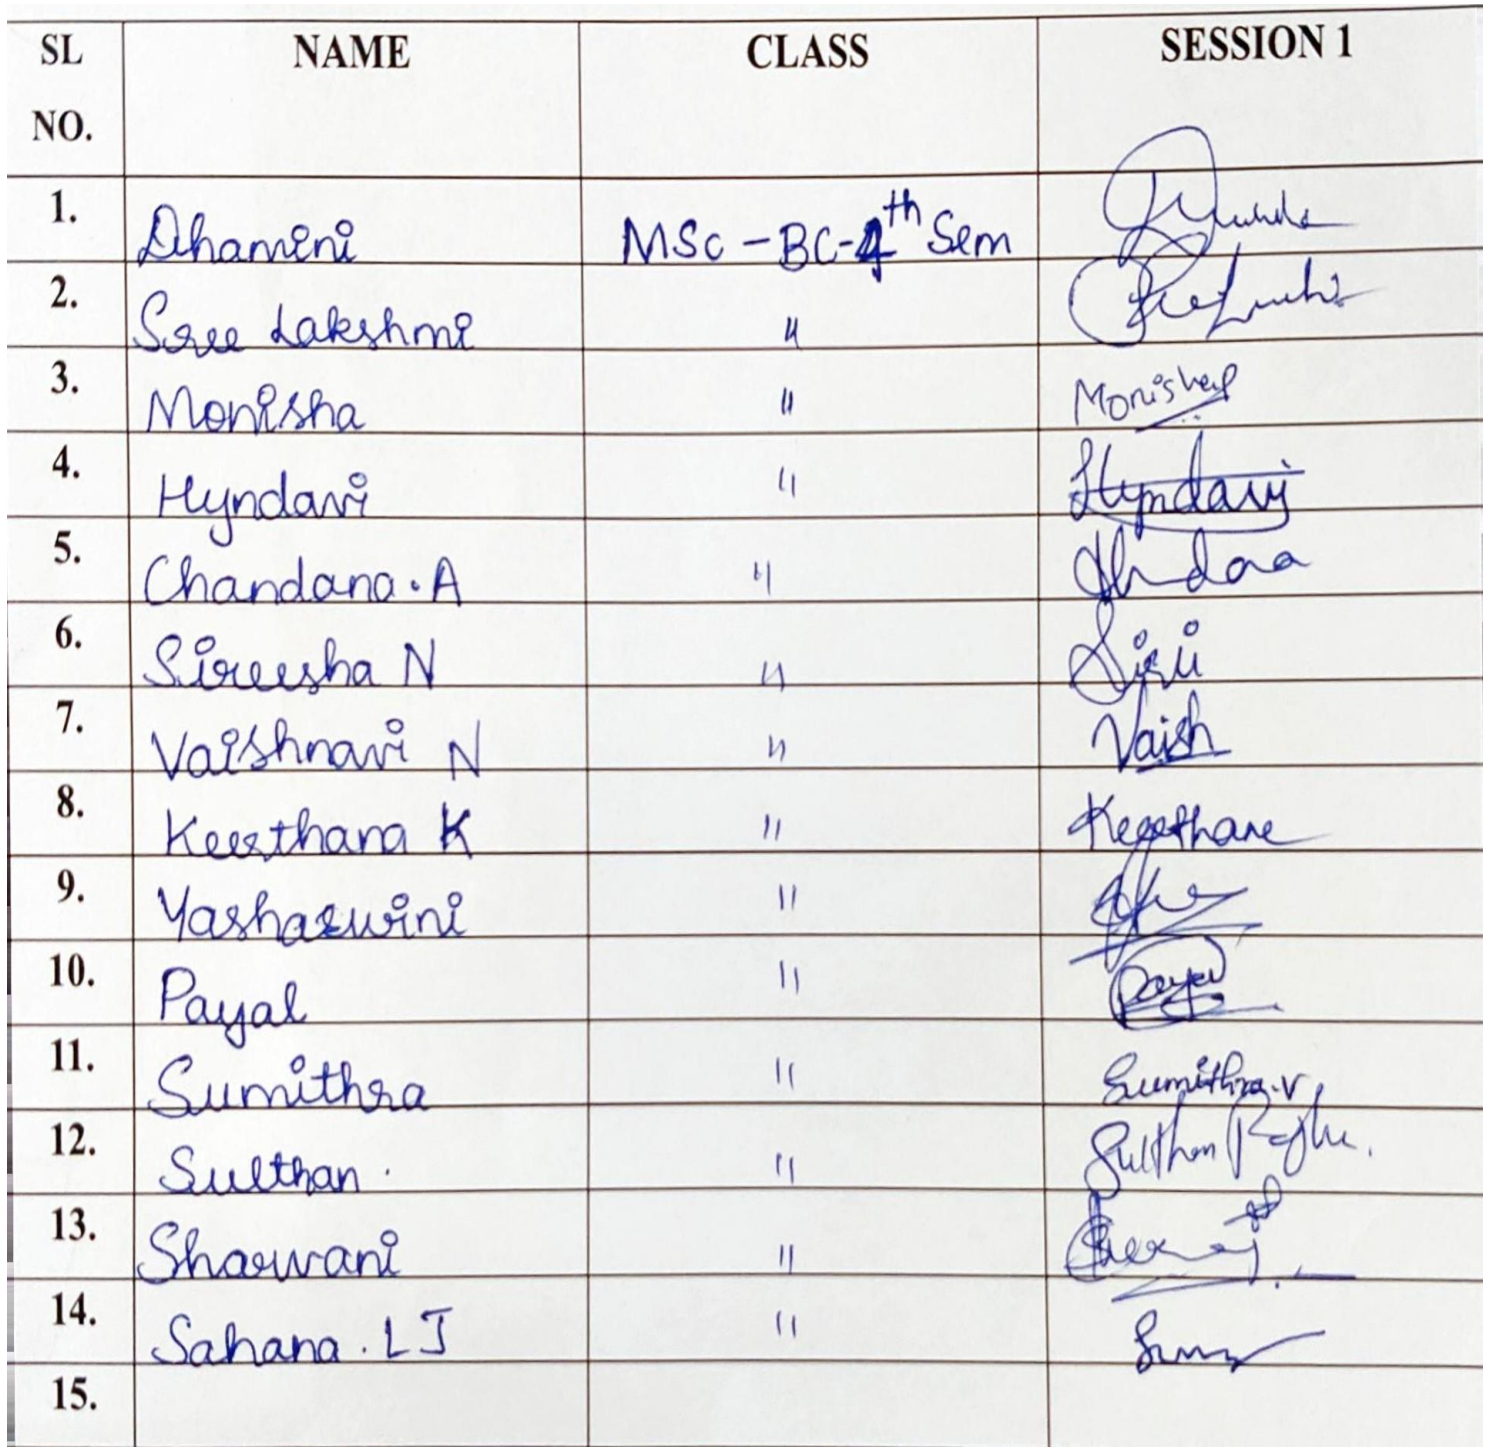 SL NO. NAME CLASS SESSION 1
1. Dhamini MSc - BC - 4th Sem
2. Sree Lakshmi "
3. Monisha " Monisha
4. Hyndavi " Hyndavi
5. Chandana . A "
6. Sireesha N " Siri
7. Vaishnavi N " Vaish
8. Keerthana K " Keerthana
9. Yashaswini "
10. Payal " Payal
11. Sumithra " Sumithra.V
12. Sulthan . " Sulthan
13. Sharvani "
14. Sahana . L J "
15.